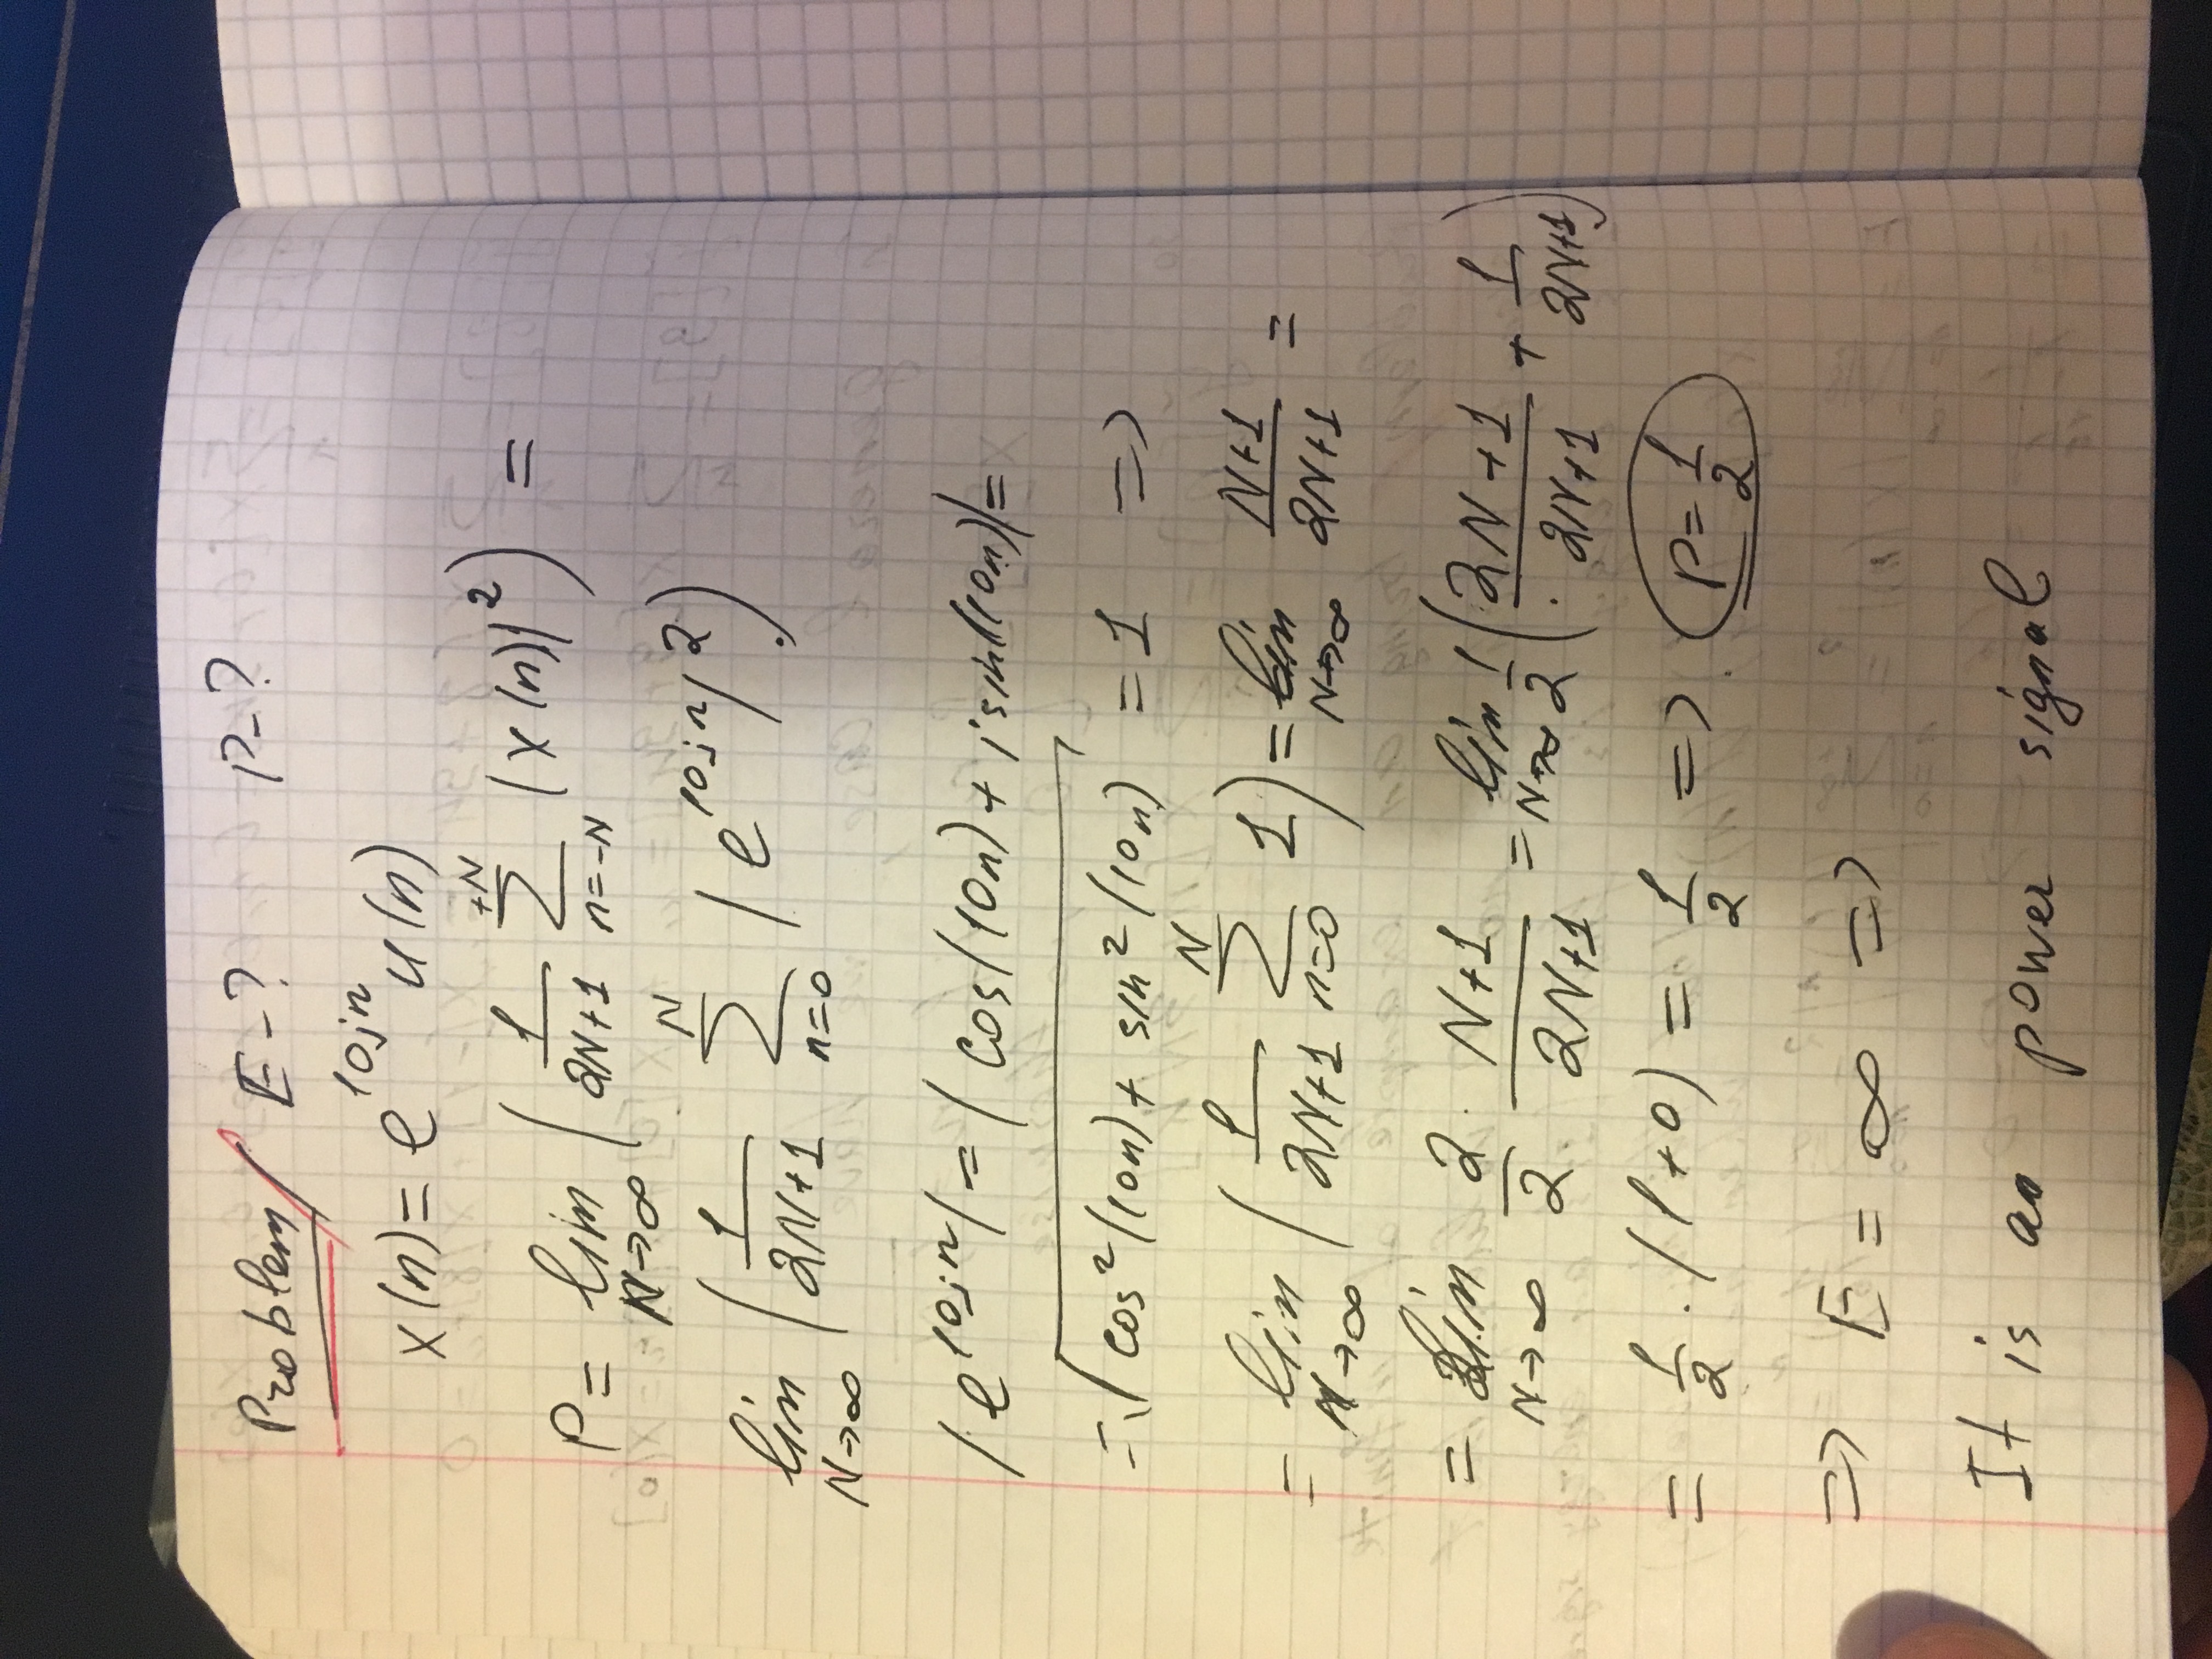 Problem/ E-? P-?
x(n) = e^{10jn} u(n)
P = lim_{N→∞} ( 1/(2N+1) ∑_{n=-N}^{+N} |x(n)|^2 ) =
lim_{N→∞} ( 1/(2N+1) ∑_{n=0}^{N} |e^{10jn}|^2 )
|e^{10jn}| = | cos(10n) + j sin(10n)| =
= √(cos^2(10n) + sin^2(10n)) = 1 =>
= lim_{N→∞} ( 1/(2N+1) ∑_{n=0}^{N} 1 ) = lim_{N→∞} (N+1)/(2N+1) =
= lim_{N→∞} 2/2 · (N+1)/(2N+1) = lim_{N→∞} 1/2 ( (2N+1)/(2N+1) + 1/(2N+1) )
= 1/2 · (1+0) = 1/2 => P = 1/2
=> E = ∞ =>
It is a power signal